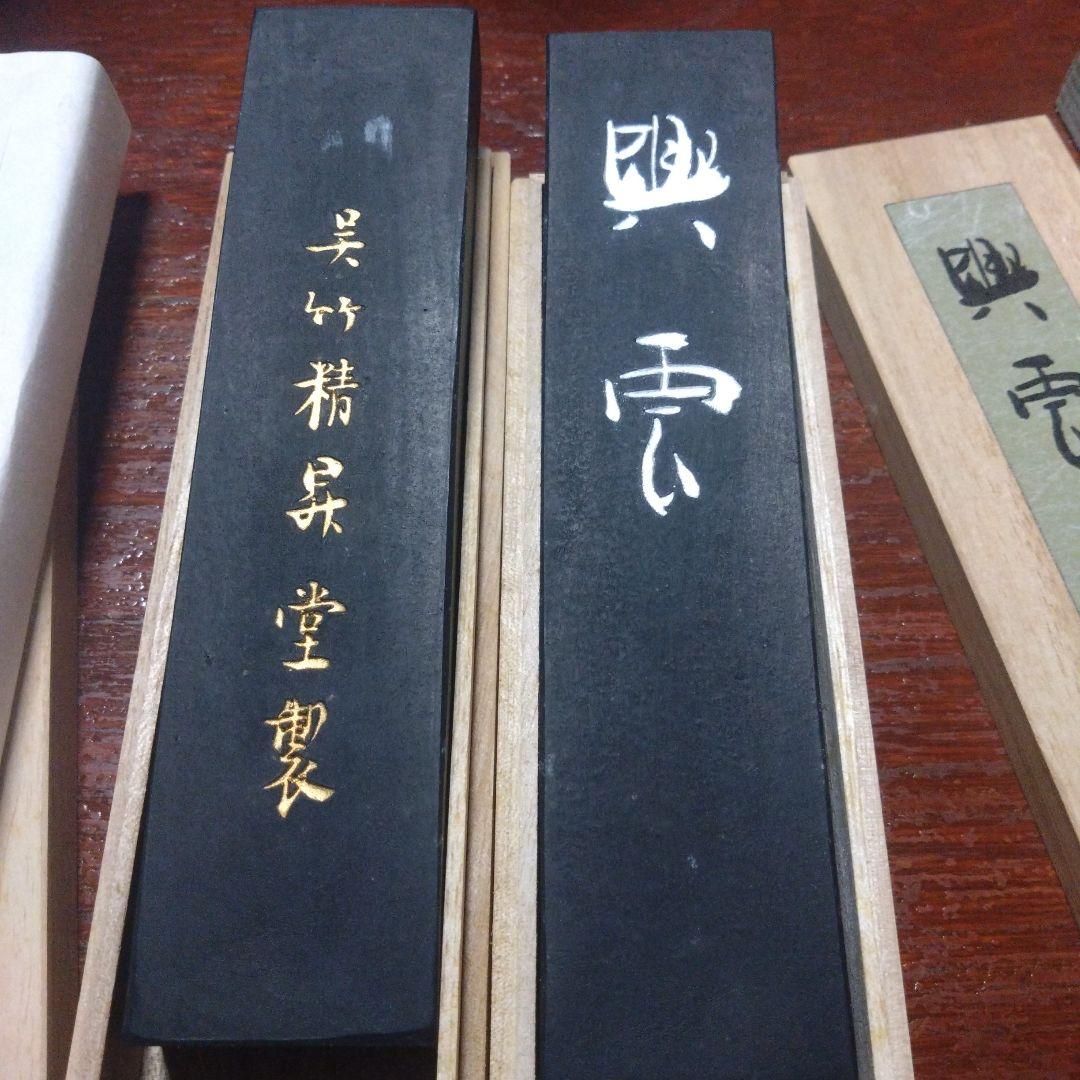 呉竹精昇堂製
興雲
興雲